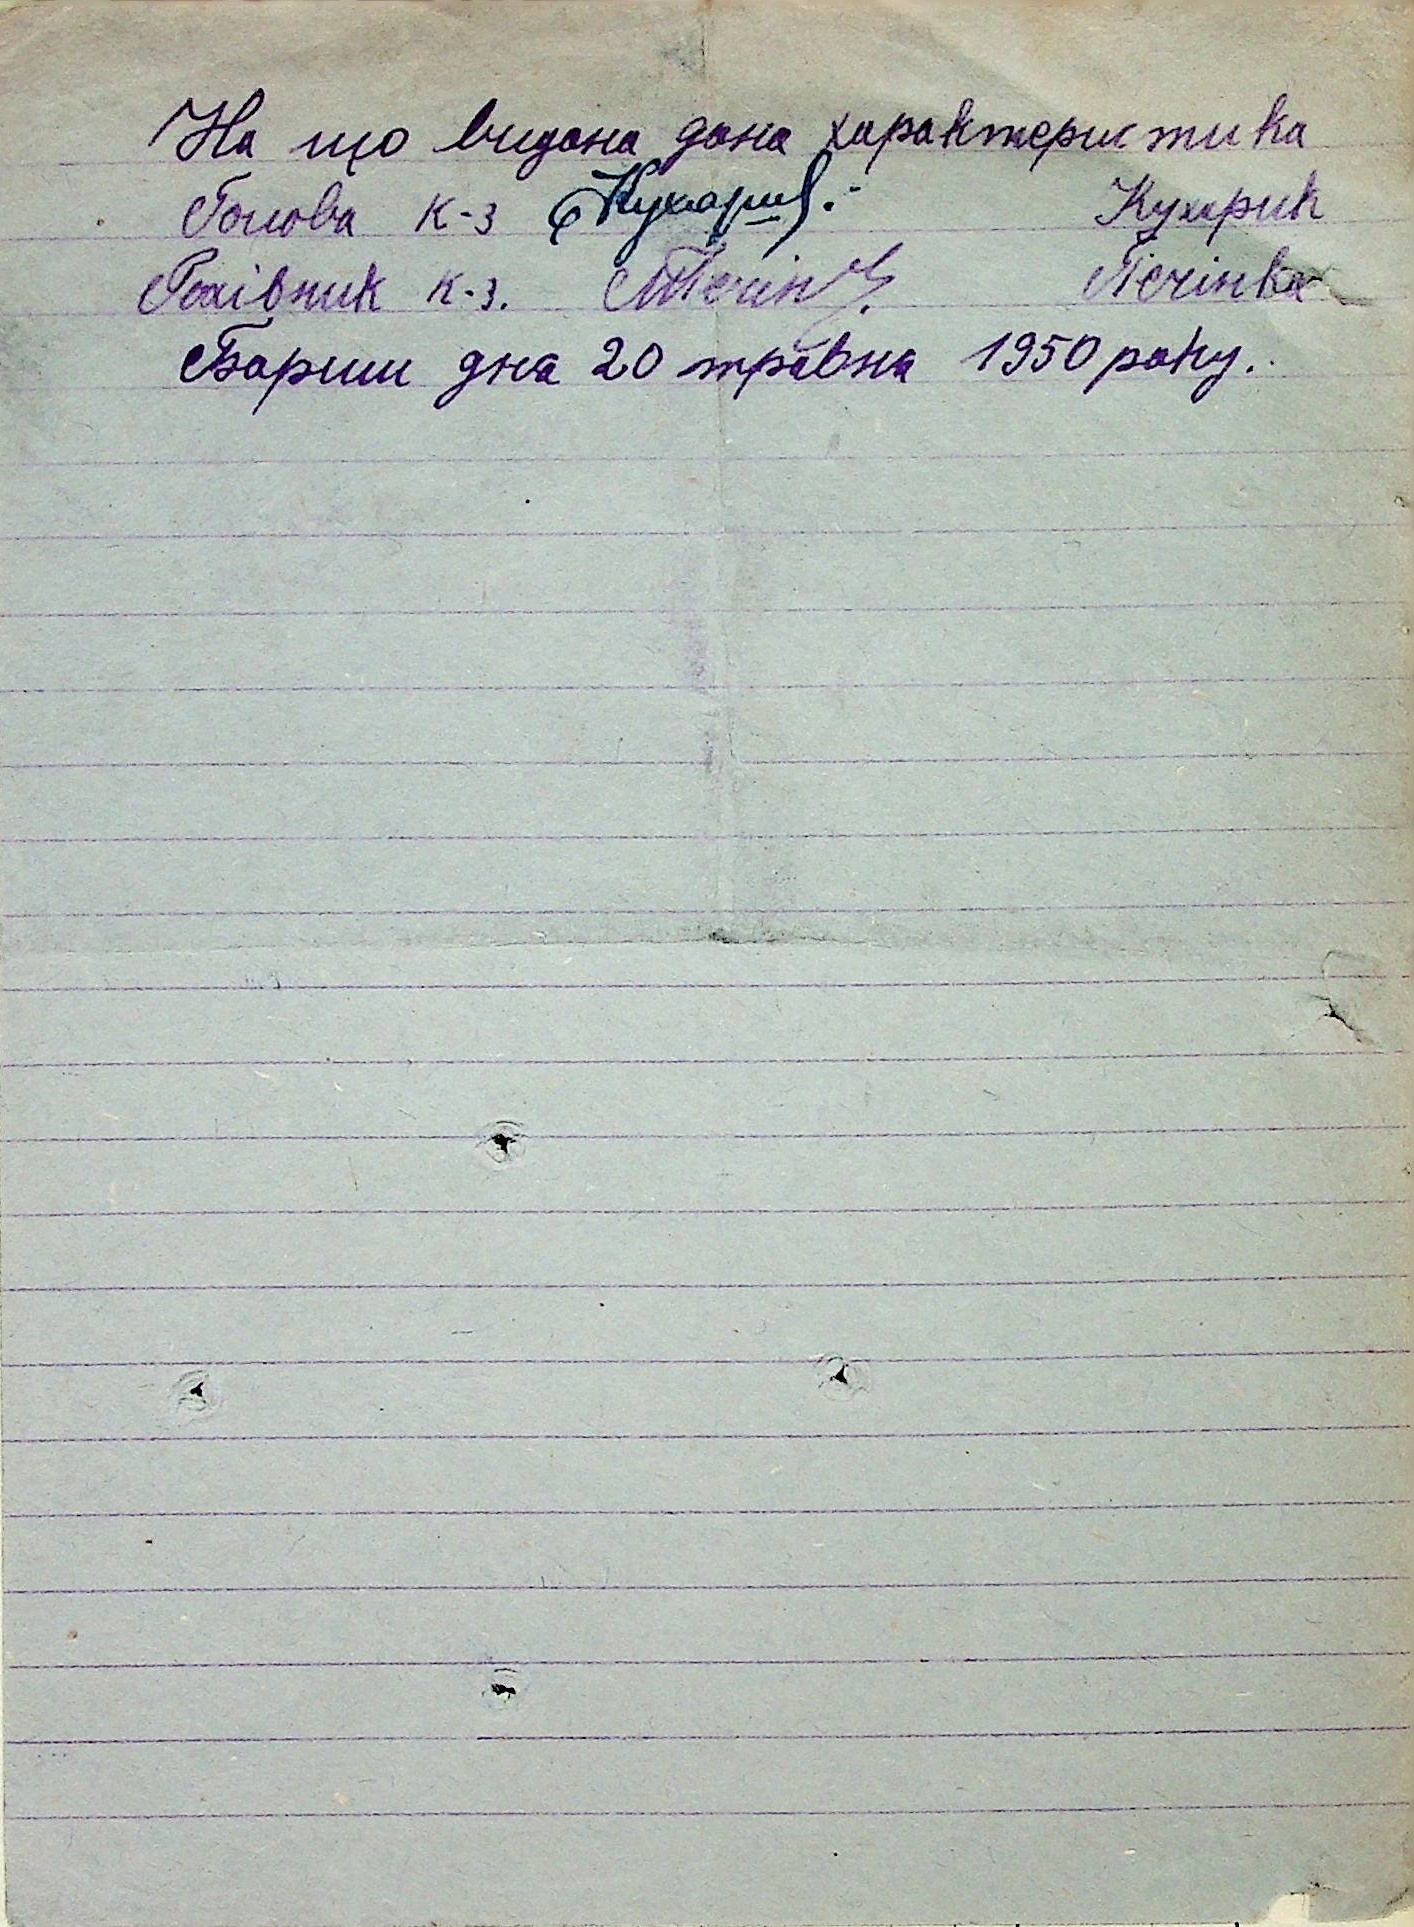 На що видана дана характеристика
Голова к-з Кухарик Кухарик
Рахівник к-з. Печінка
Бариш дня 20 травня 1950 року.